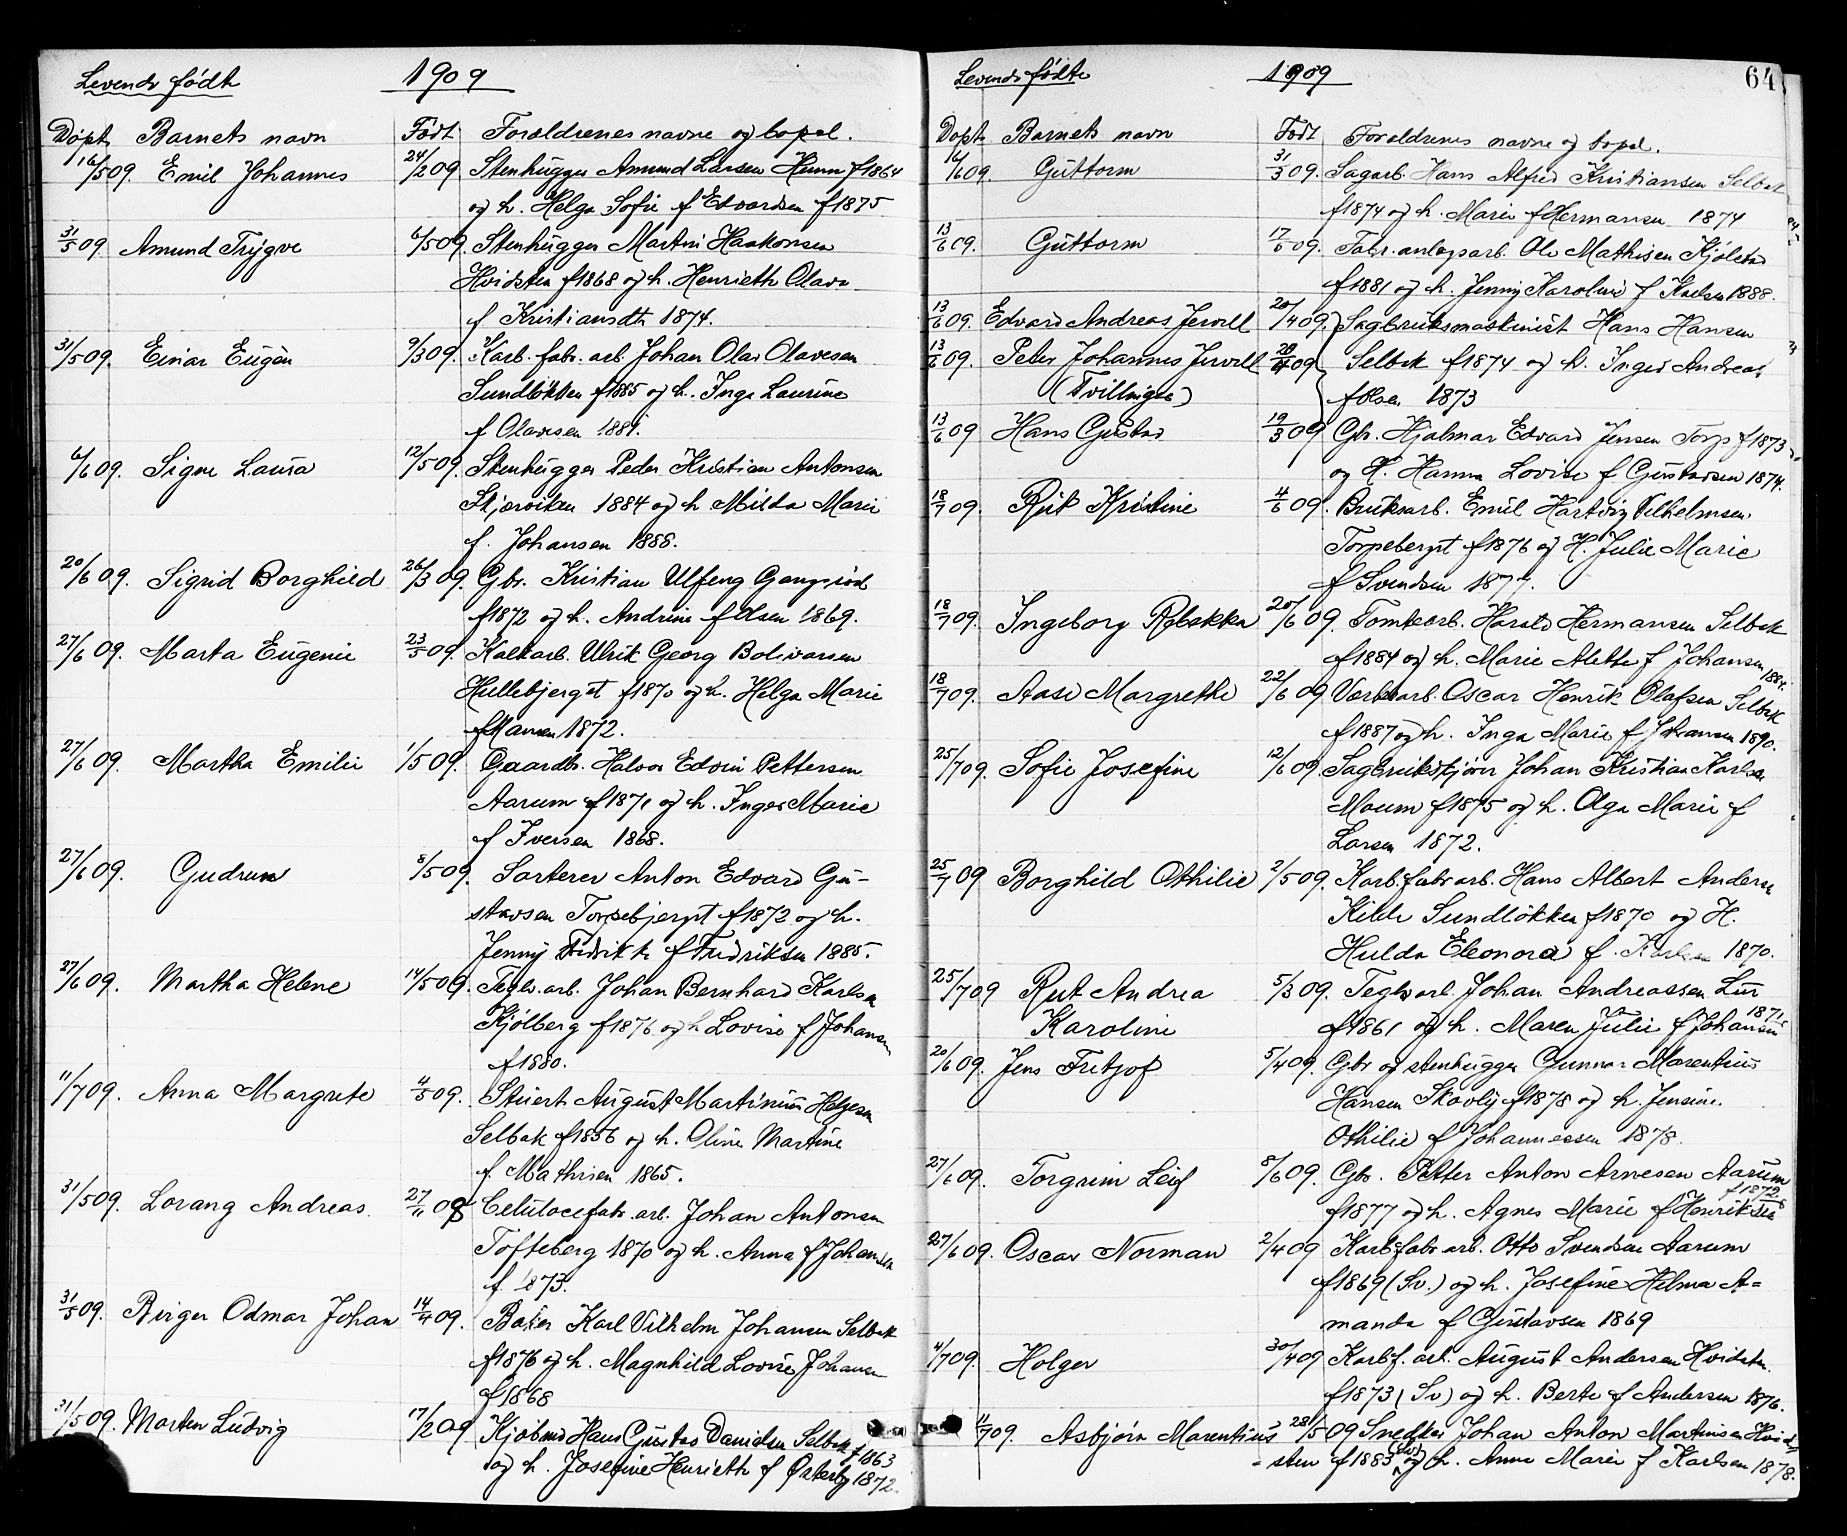 Levende födte 1909
Döpt Barnets navn Födt Foraldrenes navne og bopæl.
16/5 09. Emil Johannes 24/2 09 Stenhugger Amund Larsen Hunn f 1864
og h. Helga Sofie f Edvardsen f 1875
31/5 09. Amund Trygve 6/5 09. Stenhugger Martin Haakonsen
Hvidsten f 1868 og h. Henriette Olava
f Kristiansdtr 1874.
31/5 09. Einar Eugèn 9/3 09. Karb. fabr. arb. Johan Olav Olavesen
Sundlökken f 1885 og h. Inga Laurine
f Olavesen 1881.
6/6 09. Signe Laura 12/5 09. Stenhugger Peder Kristian Antonsen
Skjærviken 1884 og h Milda Marie
f. Johansen 1888.
20/6 09. Sigrid Borghild 26/3 09. Gbr. Kristian Ulfeng Gangsröd
f 1872 og h. Andrine f Olsen 1869.
27/6 09. Marta Eugenie 23/5 09. Kalkarb. Ulrik Georg Bolivarsen
Hullebjerget f 1870 og h. Helga Marie
f Hansen 1872.
27/6 09. Martha Emilie 1/5 09. Gaardbr. Halvor Edvin Pettersen
Aarum f 1871 og h. Inger Marie
f Iversen 1868.
27/6 09. Gudrun 8/5 09. Sorterer Anton Edvard Gu-
stavsen Torpebjerget f 1872 og h.
Jenny Fredrikke f Fredriksen 1885.
27/6 09. Martha Helene 14/5 09. Teglv. arb. Johan Bernhard Karlsen
Kjölberg f 1876 og h Lovise f Johansen
f 1880.
11/7 09. Anna Margrete 4/5 09. Stuert August Martinius Helgesen
Selbak f 1856 og h. Oline Martine
f. Mathisen 1865.
31/5 09. Lorang Andreas 27/11 08 Celulosefabr. arb. Johan Antonsen
Tofteberg 1870 og h. Anna f Johansen
f. 1873.
31/5 09. Birger Odmar Johan 14/4 09. Baker Karl Vilhelm Johansen Selbak
f 1876 og h. Magnhild Lovise Johansen
f 1868
31/5 09. Morten Ludvig 17/2 09 Kjöbmd Hans Gustav Danielsen Selbak f 1863
og h. Josefine Henriette f Österby 1872.
Levende födte 1909 64
Döpt Barnets navn Födt Foraldrenes navne og bopæl.
16/6 09. Guttorm 31/3 09. Sagarb. Hans Alfred Kristiansen Selbak
f 1874 og h. Marie f Hermansen 1874
13/6 09. Guttorm 17/5 09. Fabr. anlegsarb. Ole Mathisen Kjölstad
f 1881 og h. Jenny Karoline f Karlsen 1888.
13/6 09. Edvard Andreas Jervell 20/4 09. Sagbruksmaskinist Hans Hansen
13/6 09. Peter Johannes Jervell 20/4 09 Selbak f 1874 og h. Inger Andrea
(Tvillinger) f Olsen 1873
13/6 09 Hans Gustav 19/3 09 Gbr. Hjalmar Edvard Jensen Torp f 1873
og H. Hanna Lovise f Gustavsen 1874.
18/7 09. Rut Kristine 4/6 09. Bruksarb. Emil Hartvig Vilhelmsen
Torpeberget f 1876 og H. Julie Marie
f Svendsen 1877.
18/7 09. Ingeborg Rebekka 20/6 09. Tomtearb. Harald Hermansen Selbak
f 1884 og h. Marie Alette f Johansen 1884.
18/7 09. Aase Margrethe 22/6 09 Værksarb. Oscar Henrik Olafsen Selbak
f 1887 og h. Inga Marie f Johansen 1890.
25/7 09. Sofie Josefine 12/6 09. Sagbrukskjörer Johan Kristian Karlsen
Moum f 1875 og h. Olga Marie f
Larsen 1872.
25/7 09 Borghild Othilie 2/5 09. Karb. fabr arb. Hans Albert Andersen
Kihle Sundlökken f 1870 og H.
Hulda Eleonora f. Karlsen 1870.
25/7 09 Rut Andrea 5/3 09. Teglv arb. Johan Andreassen Lur
Karoline f 1861 og h. Maren Julie f Johansen 1871
20/6 09. Jens Fritjof 5/4 09. Gbr og stenhugger Gunnar Marentius
Hansen Skovly f 1878 og h. Jensine
Othilie f Johannessen 1878.
27/6 09. Torgrim Leif 8/6 09. Gbr. Petter Anton Arnesen Aarum
f 1877 og h. Agnes Marie f Henriksen f 1872
27/6 09. Oscar Norman 2/4 09 Karb. fabr arb. Otto Svendsen Aarum
f 1869 (Sv.) og h. Josefine Helma A=
manda f Gustavsen 1869
4/7 09. Holger 30/4 09 Karb f. arb. August Andersen Hvidsten.
f 1873 (Sv) og h. Berte f Andersen 1876.
11/7 09. Asbjörn Marentius 28/5 09 Snedker Johan Anton Martinsen Hvid-
sten f 1883 (Sv) og h. Anne Marie f Karlsen 1878.